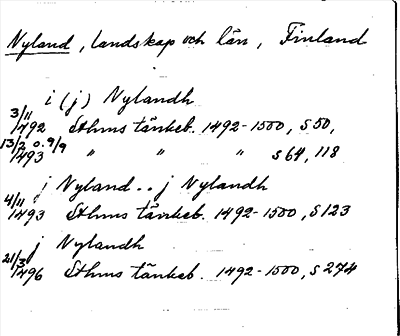 Nyland, landskap och län, Finland
i (j) Nylandh
3/11 1492 Sthms tänkeb. 1492-1500, s 50,
13/2 o. 9/9 1493 " " " s 64, 118
j Nyland.. j Nylandh
4/11 1493 Sthms tänkeb. 1492-1500, s 123
j Nylandh
21/3 1496 Sthms tänkeb. 1492-1500, s 274